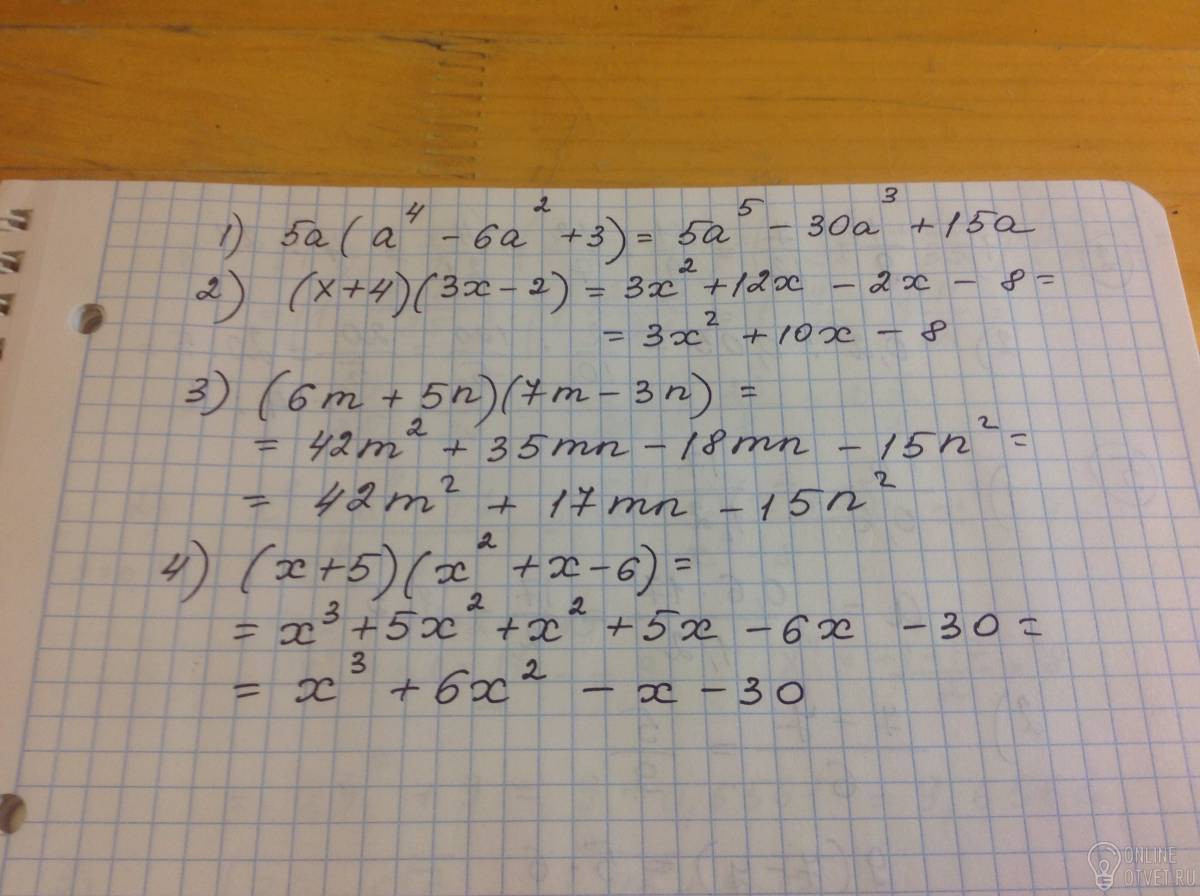 1) 5a(a⁴ - 6a² + 3) = 5a⁵ - 30a³ + 15a
2) (x+4)(3x-2) = 3x² + 12x - 2x - 8 =
= 3x² + 10x - 8
3) (6m + 5n)(7m - 3n) =
= 42m² + 35mn - 18mn - 15n² =
= 42m² + 17mn - 15n²
4) (x+5)(x² + x - 6) =
= x³ + 5x² + x² + 5x - 6x - 30 =
= x³ + 6x² - x - 30
ONLINE
OTVET.RU